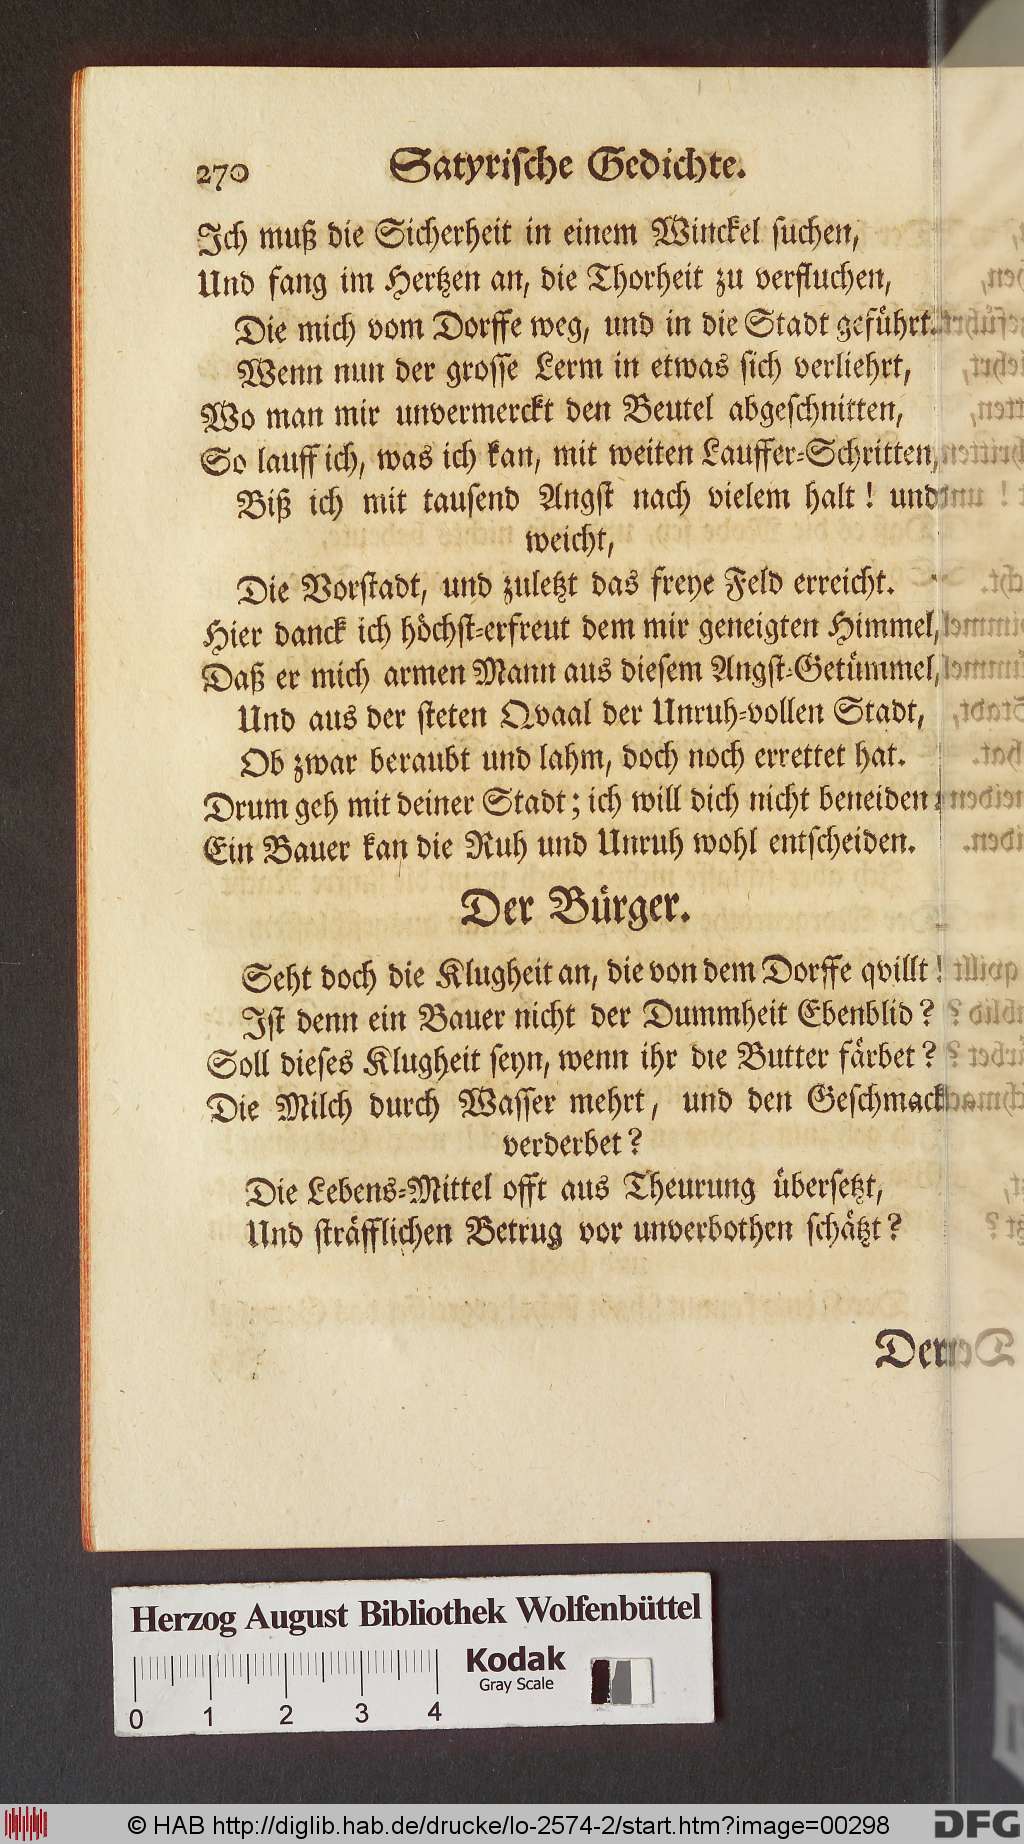 270 Satyrische Gedichte.
Ich muß die Sicherheit in einem Winckel suchen,
Und fang im Hertzen an, die Thorheit zu verfluchen,
Die mich vom Dorffe weg, und in die Stadt geführt.
Wenn nun der grosse Lerm in etwas sich verliehrt,
Wo man mir unvermerckt den Beutel abgeschnitten,
So lauff ich, was ich kan, mit weiten Lauffer-Schritten,
Biß ich mit tausend Angst nach vielem halt! und
weicht,
Die Vorstadt, und zuletzt das freye Feld erreicht.
Hier danck ich höchst-erfreut dem mir geneigten Himmel,
Daß er mich armen Mann aus diesem Angst-Getümmel,
Und aus der steten Qvaal der Unruh-vollen Stadt,
Ob zwar beraubt und lahm, doch noch errettet hat.
Drum geh mit deiner Stadt; ich will dich nicht beneiden:
Ein Bauer kan die Ruh und Unruh wohl entscheiden.
Der Bürger.
Seht doch die Klugheit an, die von dem Dorffe qvillt!
Ist denn ein Bauer nicht der Dummheit Ebenblid?
Soll dieses Klugheit seyn, wenn ihr die Butter färbet?
Die Milch durch Wasser mehrt, und den Geschmack
verderbet?
Die Lebens-Mittel offt aus Theurung übersetzt,
Und sträfflichen Betrug vor unverbothen schätzt?
Der
Herzog August Bibliothek Wolfenbüttel
Kodak
Gray Scale
0 1 2 3 4
© HAB http://diglib.hab.de/drucke/lo-2574-2/start.htm?image=00298
DFG